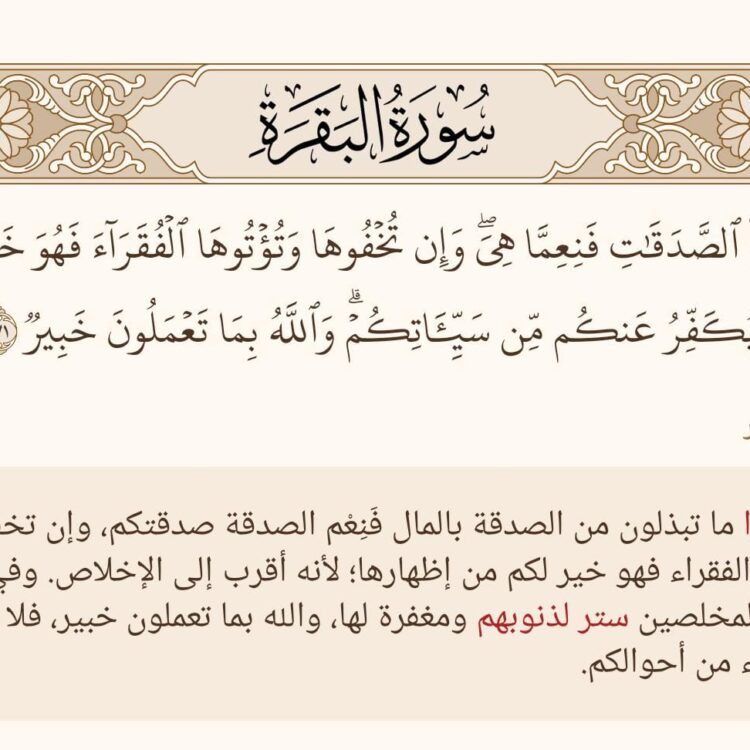 سُورَةُ البَقَرَةِ
ٱلصَّدَقَٰتِ فَنِعِمَّا هِيَۖ وَإِن تُخۡفُوهَا وَتُؤۡتُوهَا ٱلۡفُقَرَآءَ فَهُوَ
عَنكُم مِّن سَيِّـَٔاتِكُمۡۗ وَٱللَّهُ بِمَا تَعۡمَلُونَ خَبِيرٞ
ما تبذلون من الصدقة بالمال فَنِعْم الصدقة صدقتكم، وإن
الفقراء فهو خير لكم من إظهارها؛ لأنه أقرب إلى الإخلاص.
ستر لذنوبهم ومغفرة لها، والله بما تعملون خبير، فلا
من أحوالكم.